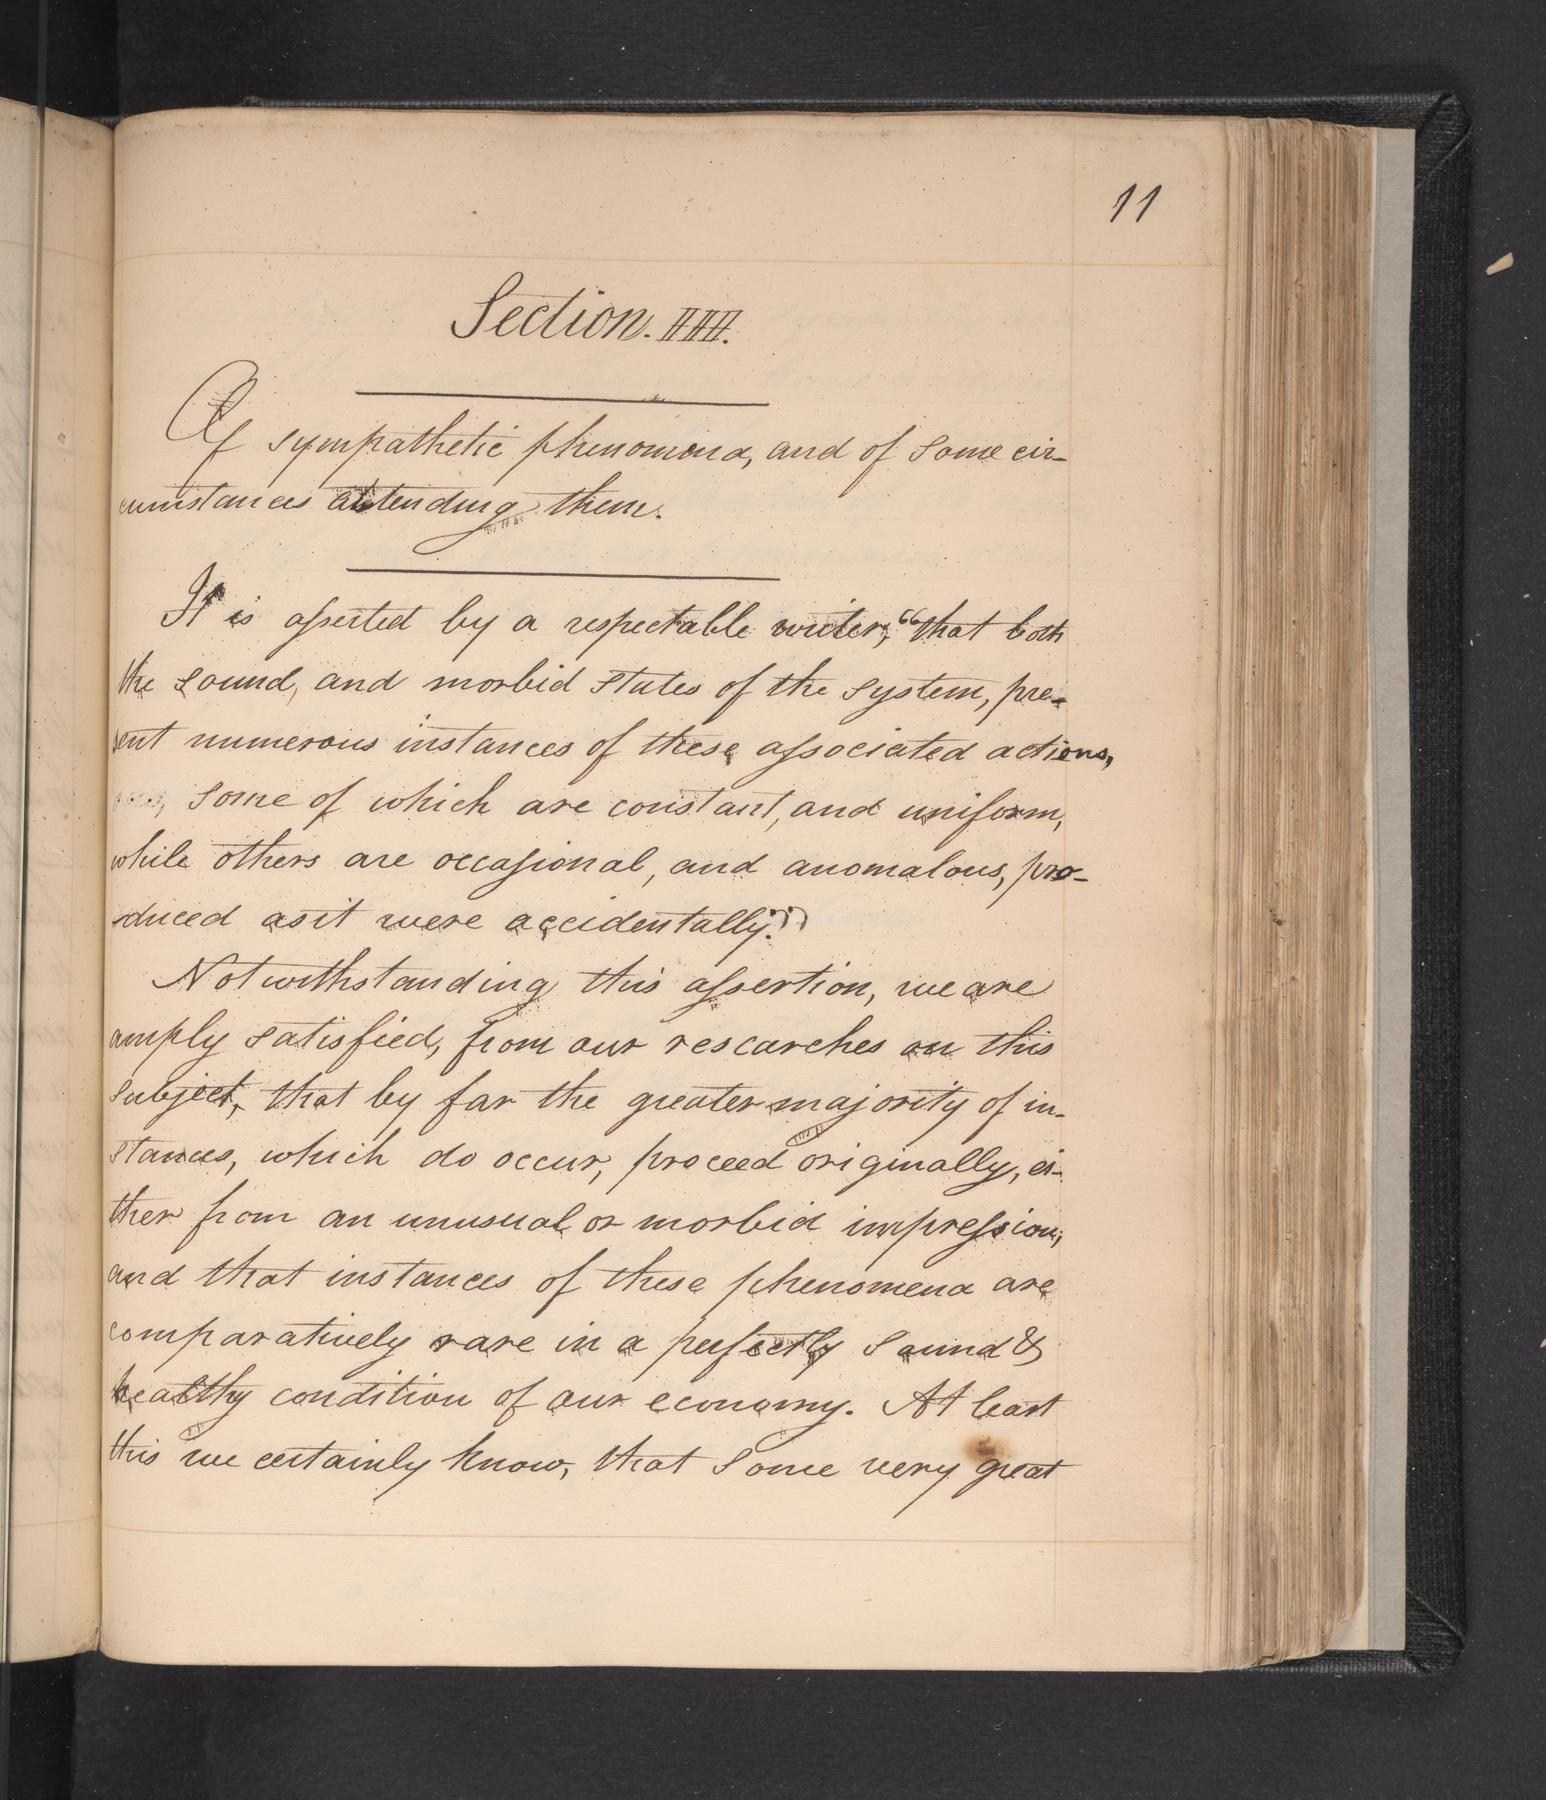 11
Section. IIII.
Of sympathetic phenomena, and of some cir-
cumstances attending them.
It is asserted by a respectable writer, "that both
the sound, and morbid states of the system, pre-
sent numerous instances of these associated actions,
some of which are constant, and uniform,
while others are occasional, and anomalous, pro-
-duced as it were accidentally."
Notwithstanding this assertion, we are
amply satisfied, from our researches on this
subject, that by far the greater majority of in-
stances, which do occur, proceed originally, ei-
ther from an unusual or morbid impression,
and that instances of these phenomena are
comparatively rare in a perfectly sound &
healthy condition of our economy. At least
this we certainly know, that some very great